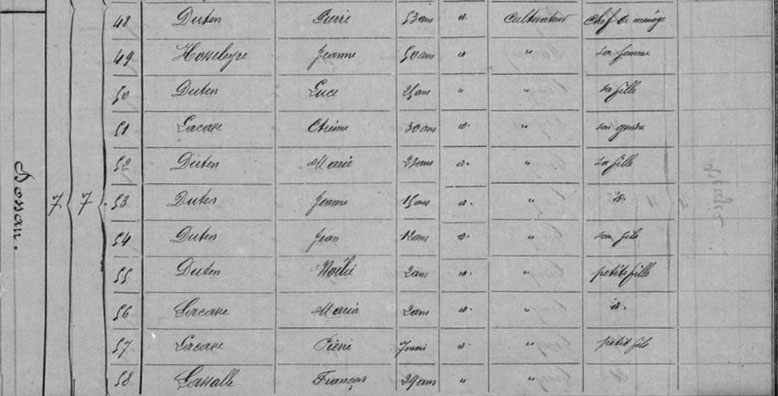 Bossau.
7 7
48 Duten Pierre 53 ans id Cultivateur Chef de ménage
49 Hosseleyre Jeanne 50 ans id " sa femme
50 Duten Luce 25 ans " " sa fille
51 Lacaze Etienne 30 ans id " son gendre
52 Duten Marie 23 ans id. " sa fille
53 Duten Jeanne 15 ans id " id.
54 Duten Jean 12 ans id " son fils
55 Duten Noélie 2 ans id " petite fille
56 Lacaze Maria 2 ans id. " id.
57 Lacaze Pierre 7 mois id. " petit fils
58 Lassalle François 29 ans " "